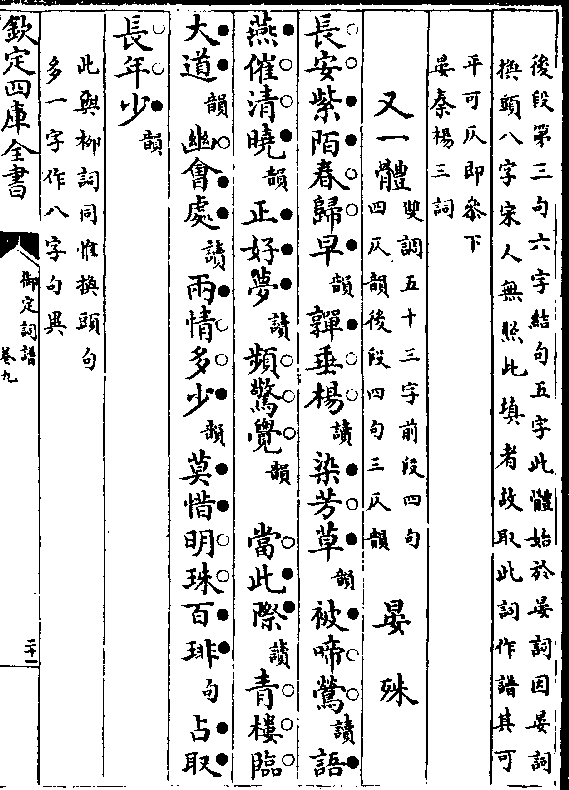 後段第三句六字結句五字此體始於晏詞因晏詞
換頭八字宋人無照此填者故取此詞作譜其可
平可仄即叅下
晏秦楊三詞
又一體 雙調五十三字前段四句
四仄韻後段四句三仄韻 晏殊
長安紫陌春歸早韻嚲垂楊讀染芳草韻被啼鶯讀語
燕催清曉韻正好夢讀頻驚覺韻 當此際讀青樓臨
大道韻幽會處讀兩情多少韻莫惜明珠百琲句占取
長年少韻
此與柳詞同惟換頭句
多一字作八字句異
欽定四庫全書
御定詞譜
卷九
二十一